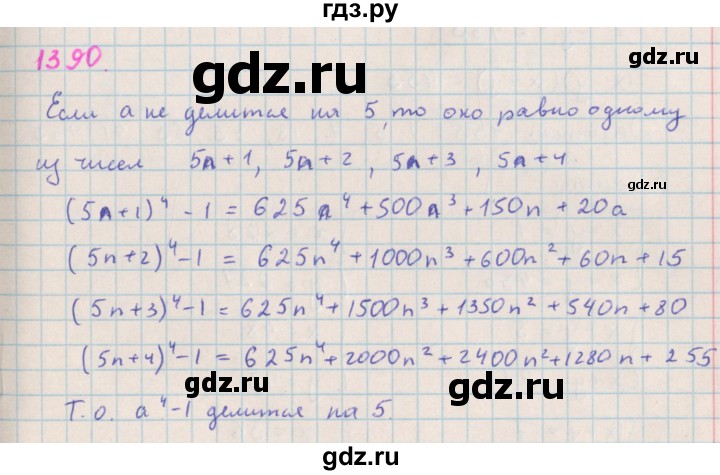 гдз.ру
1390.
gdz.ru
Если a не делится на 5, то оно равно одному
из чисел 5n+1, 5n+2, 5n+3, 5n+4
gdz.ru
(5n+1)⁴ - 1 = 625n⁴+500n³+150n+20a
gdz.ru
(5n+2)⁴-1 = 625n⁴+1000n³+600n²+60n+15
gdz.ru
(5n+3)⁴-1=625n⁴+1500n³+1350n²+540n+80
gdz.ru
(5n+4)⁴-1=625n⁴+2000n²+2400n²+1280n+255
gdz.ru
gdz.ru
Т.о. a⁴-1 делится на 5.
gdz.ru
gdz.ru